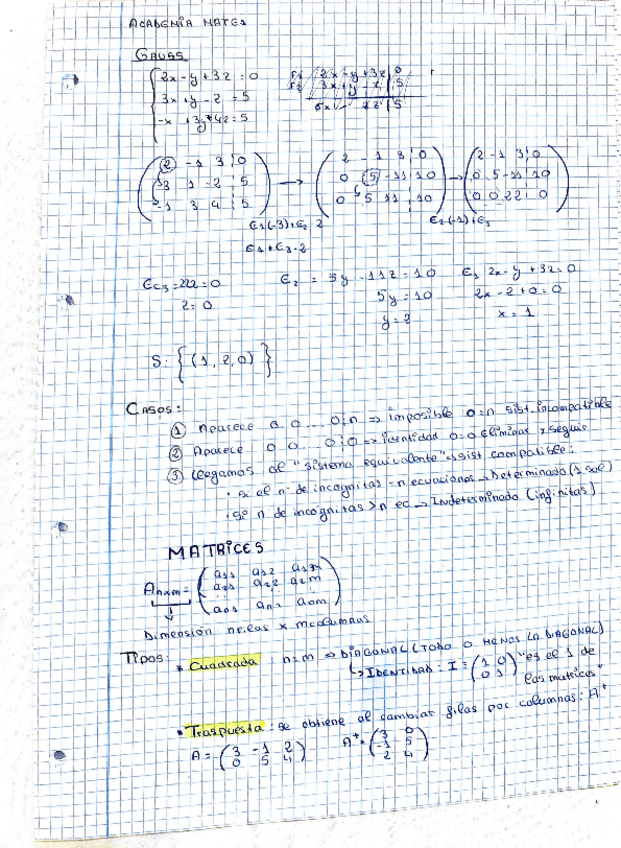 ACADEMIA MATES
GAUSS
2x - y + 3z = 0
3x + y - 2 = 5
-x + 3y + 4z = 5
2 -1 3 | 0
3 1 -2 | 5
-1 3 4 | 5
→
2 -1 3 | 0
0 5 -11 | 10
0 5 11 | 10
→
2 -1 3 | 0
0 5 -11 | 10
0 0 22 | 0
E1(-3)+E2·2
E1+E3·2
E2(-1)+E3
Ec3 = 22z = 0
z = 0
E2 = 5y - 11z = 10
5y = 10
y = 2
E1 2x - y + 3z = 0
2x - 2 + 0 = 0
x = 1
S: {(1, 2, 0)}
CASOS:
① Aparece 0 0 ... 0 | n ⇒ imposible 0=n sist. incompatible
② Aparece 0 0 ... 0 | 0 ⇒ identidad 0=0 eliminar y seguir
③ llegamos al "sistema equivalente" → sist compatible:
· si el nº de incognitas = n ecuaciones → Determinado (1 sol)
· si n de incógnitas > n ec → Indeterminado (infinitas)
MATRICES
Anxm = (a11 a12 a1m
a21 a22 a2m
an1 an2 anm)
Dimensión n filas x m columnas
Tipos:
* Cuadrada : n=m ⇒ DIAGONAL (TODO 0 MENOS LA DIAGONAL)
↳ IDENTIDAD : I = (1 0
0 1) "es el 1 de las matrices"
* Traspuesta : se obtiene al cambiar filas por columnas: A^t
A = (3 -1 2
0 5 4)
A^t = (3 0
-1 5
2 4)